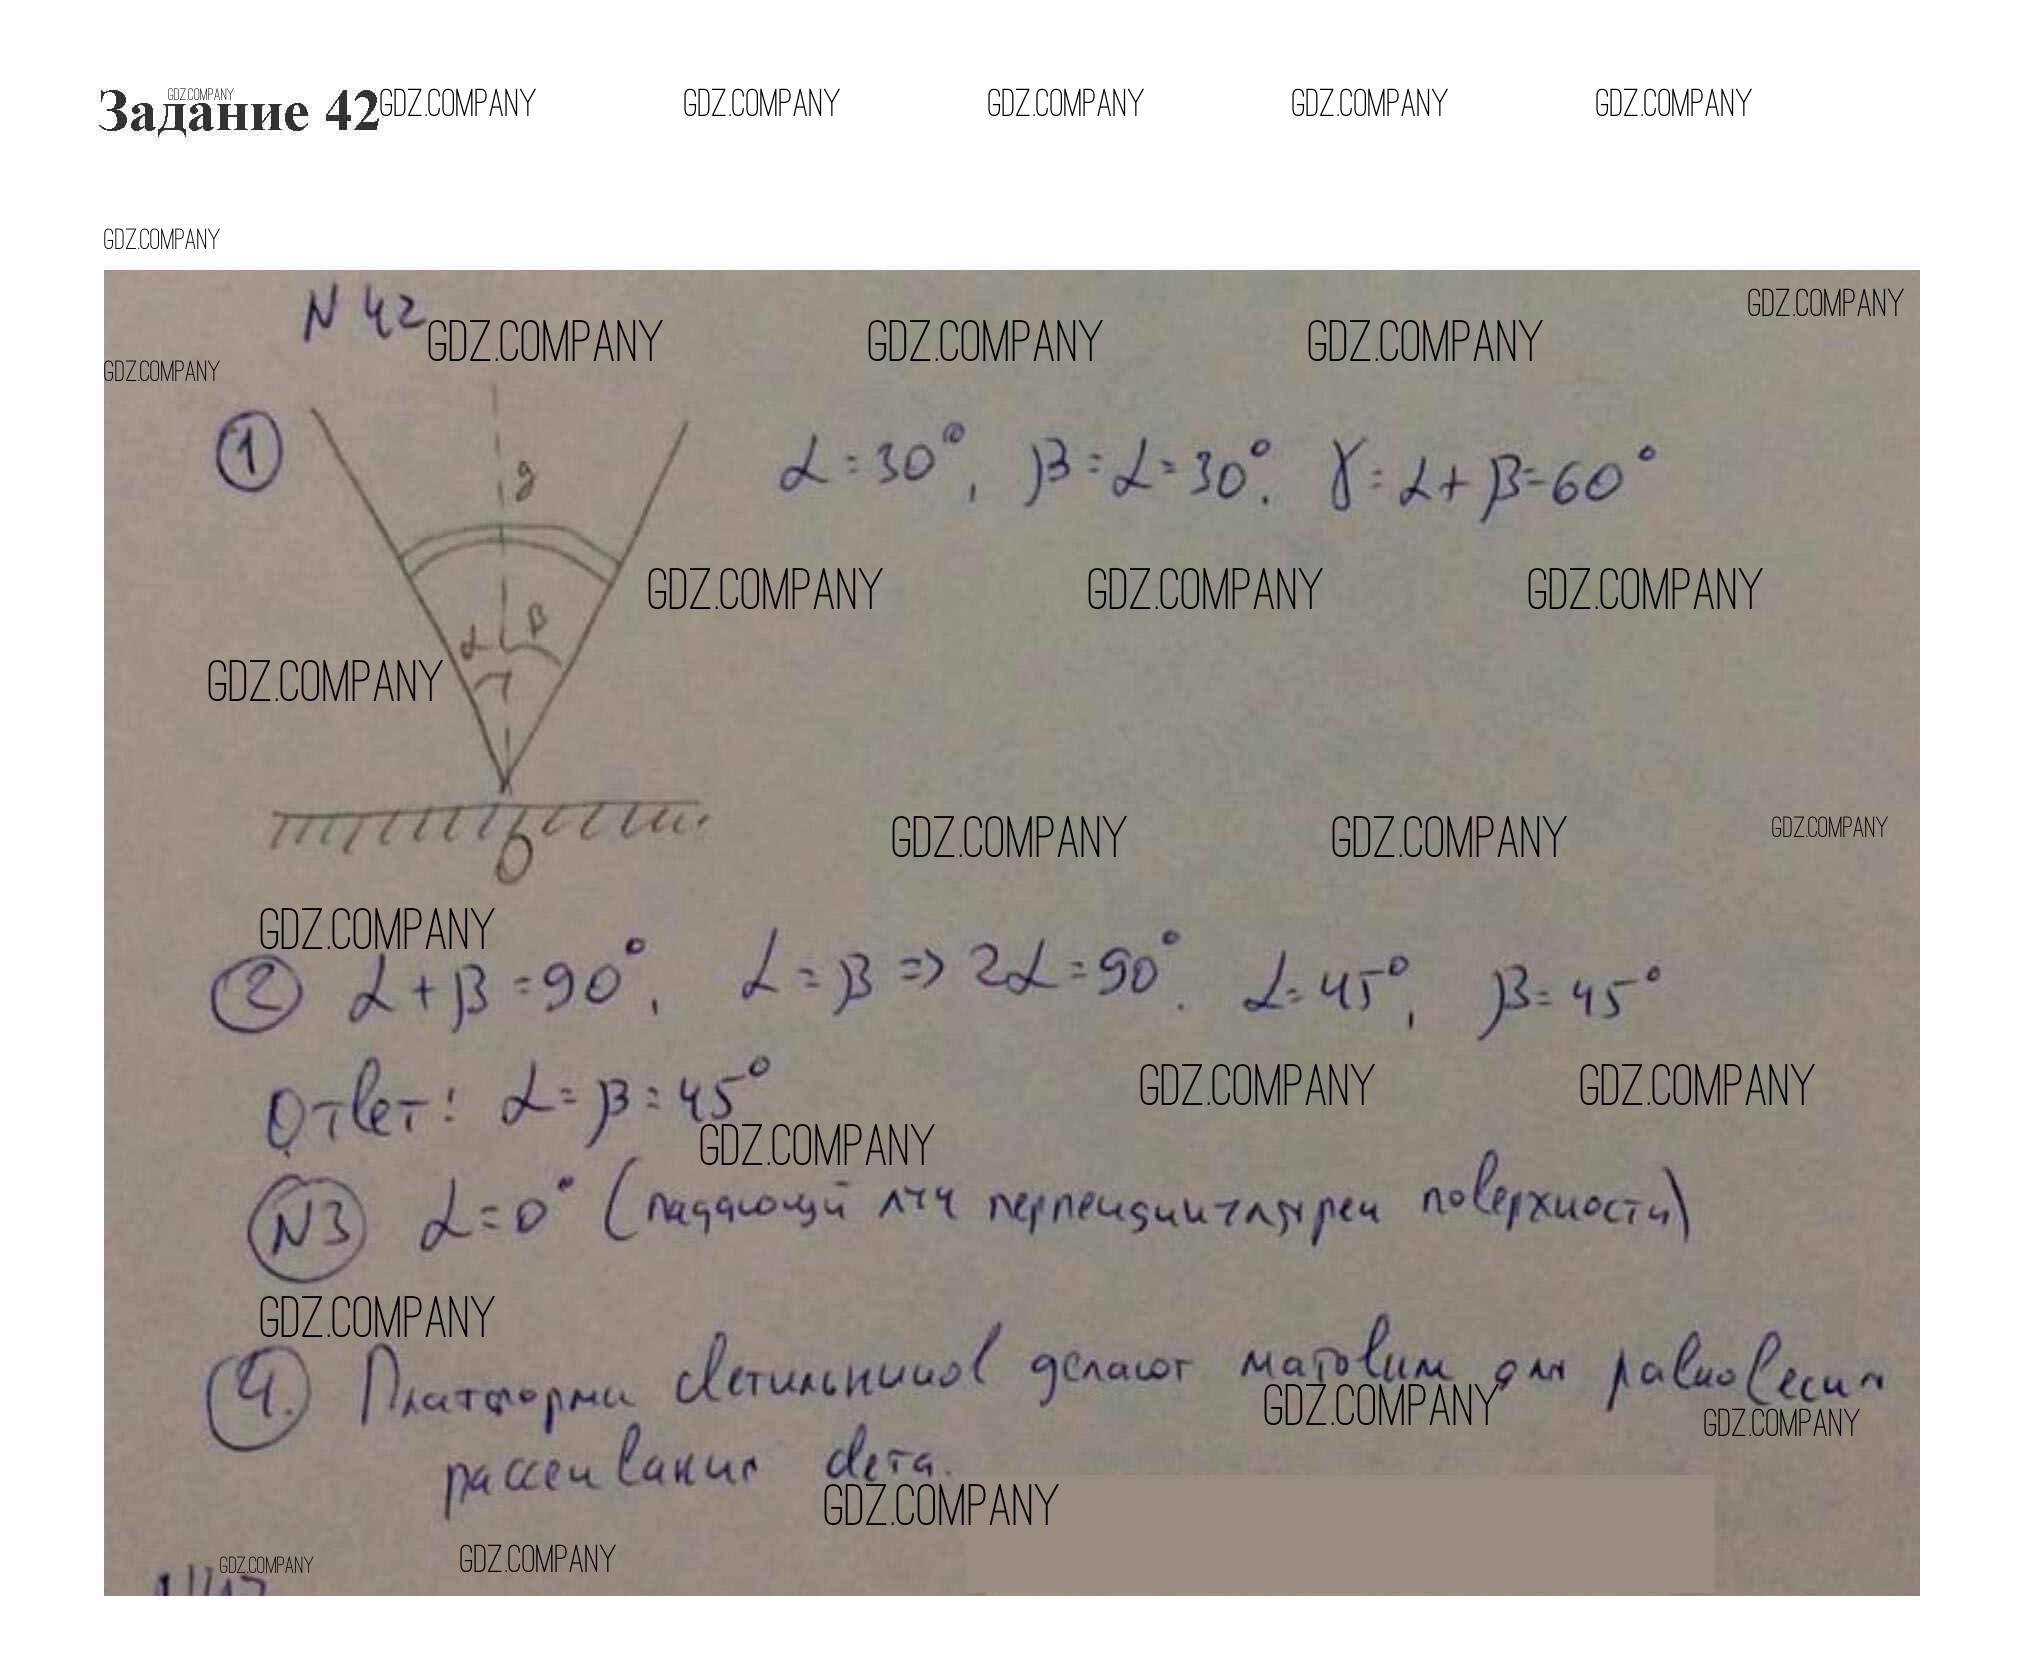 Задание 42
GDZ.COMPANY GDZ.COMPANY GDZ.COMPANY GDZ.COMPANY GDZ.COMPANY GDZ.COMPANY
GDZ.COMPANY
N 42
GDZ.COMPANY GDZ.COMPANY GDZ.COMPANY GDZ.COMPANY
GDZ.COMPANY
① α = 30°, β = α = 30°. γ = α + β = 60°
GDZ.COMPANY GDZ.COMPANY GDZ.COMPANY
α β
GDZ.COMPANY
GDZ.COMPANY GDZ.COMPANY GDZ.COMPANY
O
GDZ.COMPANY
② α + β = 90°, α = β => 2α = 90°. α = 45°, β = 45°
GDZ.COMPANY GDZ.COMPANY
Ответ: α = β = 45°
GDZ.COMPANY
N3 α = 0° (падающий луч перпендикулярен поверхности)
GDZ.COMPANY
4. светильников делают для
GDZ.COMPANY GDZ.COMPANY
рассеивания света.
GDZ.COMPANY
GDZ.COMPANY GDZ.COMPANY